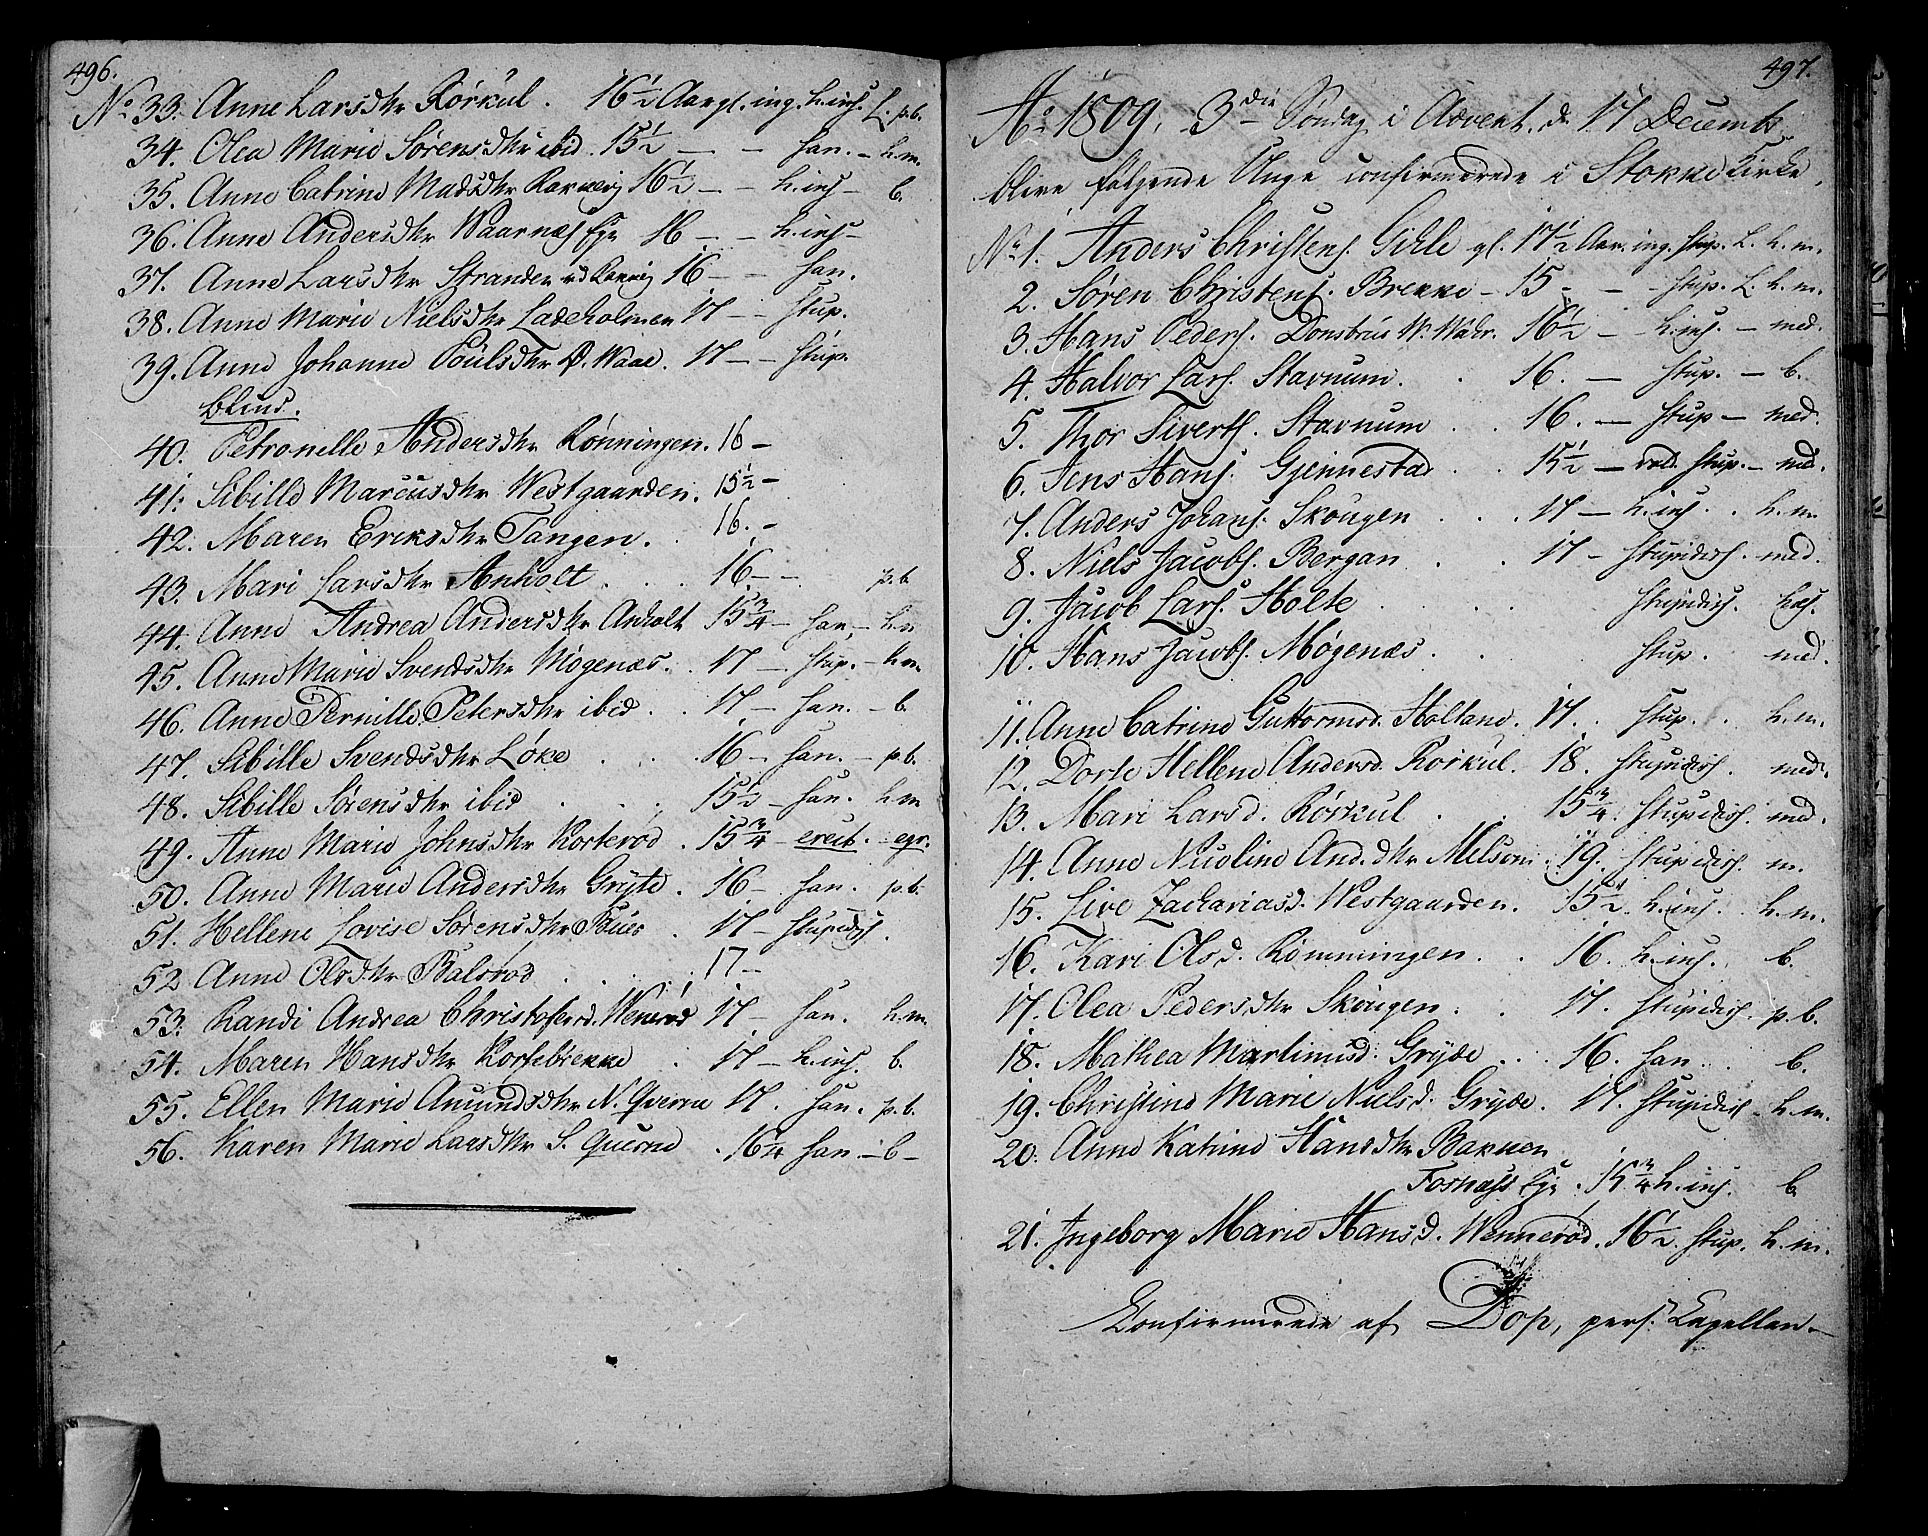 496.
No 33. Anne Larsdtr Rörkul. 16½ Aar gl. ing. h. ins. L. p.b.
34. Olea Marie Sørensdtr ibid. 15½ — — san. — h.m.
35. Anne Catrine Madsdtr 16½ — — h. ins — b.
36. Anne Andersdtr Waarnæs Eje 16 — — h. ins —
37. Anne Larsdtr Stranden v. 16 — — san.
38. Anne Marie Nielsdtr Ladeholmen 17 — — stup.
39. Anne Johanne Poulsdtr 17 — — stup.
40. Petronelle Andersdtr Rønningen. 16 —
41. Sibille Marcusdtr Westgaarden. 15½ —
42. Maren Eriksdtr Tangen. 16. —
43. Mari Larsdtr Anholt . . . 16 — — p.b
44. Anne Andrea Andersdtr Anholt 15¾ — san. — h.m
45. Anne Marie Svendsdtr Mögenæs. 17 — stup. — h.m.
46. Anne Pernille Petersdtr ibid . . 17 — san. — b
47. Sibille Svendsdtr Løke . . . 16 — san. — p.b.
48. Sibille Sørensdtr ibid . . . 15½ — san. h.m
49. Anne Marie Johnsdtr Korterød . 15¾ — erect. — egr.
50. Anne Marie Andersdtr Gryte . 16 — san. p.b.
51. Hellene Lovise Sørensdtr . 17 — stupidiss.
52 Anne Olsdtr Balsrod . . . 17 —
53. Randi Andrea Christofersd. Wennerød 17 — san. h.m.
54. Maren Hansdtr Kortebrekke . 17 — h. ins. b.
55. Ellen Marie Amundsdtr N. Qverne 17. san. p.b.
56. Karen Marie Larsdtr S. Querne . 16¼ san — b —
497.
Ao 1809, 3die Søndag i Advent, d. 17 Decembr
blive følgende Unge confirmerede i Stokke Kirke.
No 1. Anders Christens. Gihle gl. 17½ Aar. ing. stup. L. h.m.
2. Søren Christens. Brekke — 15 — — stup. L. h.m.
3. Hans Peders. 16½ — h. ins. — med.
4. Halvor Lars. Stavnum. . 16. — stup. — b.
5. Thor Siverts. Stavnum . . 16. — stup — med.
6. Jens Hans. Gjennestad . . 15½ — stup. — med.
7. Anders Johans. Skougen . . . 17 — h. ins. . h.m.
8. Niels Jacobs. Bergan . . 17 — stupidiss. med.
9. Jacob Lars. Holte . . . stupidiss.
10. Hans Jacobs. Møgenæs . . stup. med.
11. Anne Catrine Guttormsd. Holtane. 17. . stup. . h.m.
12. Dorte Hellene Andersd. Rorkul. 18. stupidiss. med.
13. Mari Larsd. Rörkul . . 15¾. stupidiss. med.
14. Anne Nicoline And.dtr Melsom. 19. stupidiss. m.
15. Live Zachariasd. Westgaarden. 15½. h. ins. . h.m.
16. Kari Olsd. Rømmingen . . 16. h. ins. . b.
17. Olea Pedersdtr Skougen . . 17. stupidiss. p.b.
18. Mathea Martinusd. Gryde . . . 16. san . . b.
19. Christine Marie Nielsd. Gryde. 17. stupidiss. h.m.
20. Anne Katrine Hansdtr Bakken
Fosnæss Eje . 15¾ h. ins. b
21. Ingeborg Marie Hansd. Wennerød. 16½. stup. h.m.
Confirmerede af Dop, pers. Capellan —